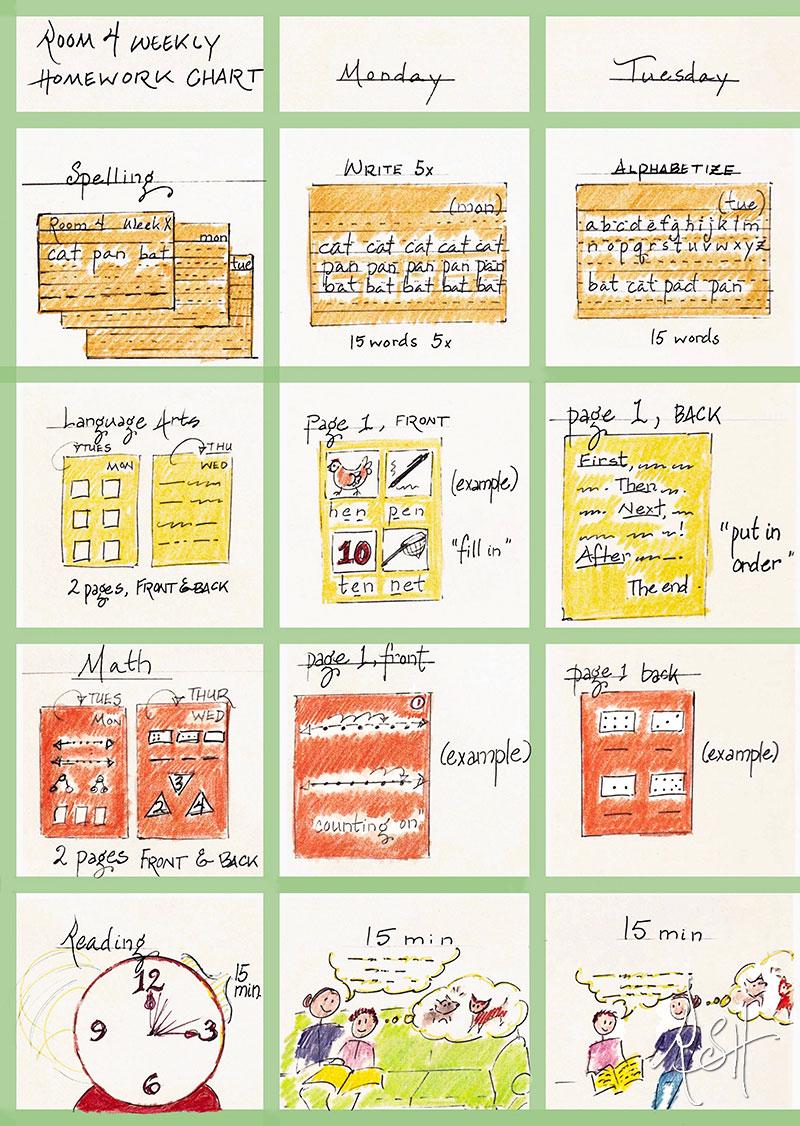 ROOM 4 WEEKLY
HOMEWORK CHART
Monday
Tuesday
Spelling
Room 4 Week X
cat pan bat
mon
tue
WRITE 5x
(mon)
cat cat cat cat cat
pan pan pan pan pan
bat bat bat bat bat
15 words 5x
ALPHABETIZE
(tue)
abcdefghijklm
nopqrstuvwxyz
bat cat pad pan
15 words
Language Arts
TUES
MON
THU
WED
2 pages, FRONT & BACK
Page 1, FRONT
hen pen
10
ten net
(example)
"fill in"
page 1, BACK
First,
Then
Next,
!
After
The end
"put in
order"
Math
TUES
MON
THUR
WED
3
2 4
2 pages FRONT & BACK
page 1, front
1
"counting on"
(example)
page 1 back
(example)
Reading
12
9 3
6
15
min.
15 min
15 min
RSH